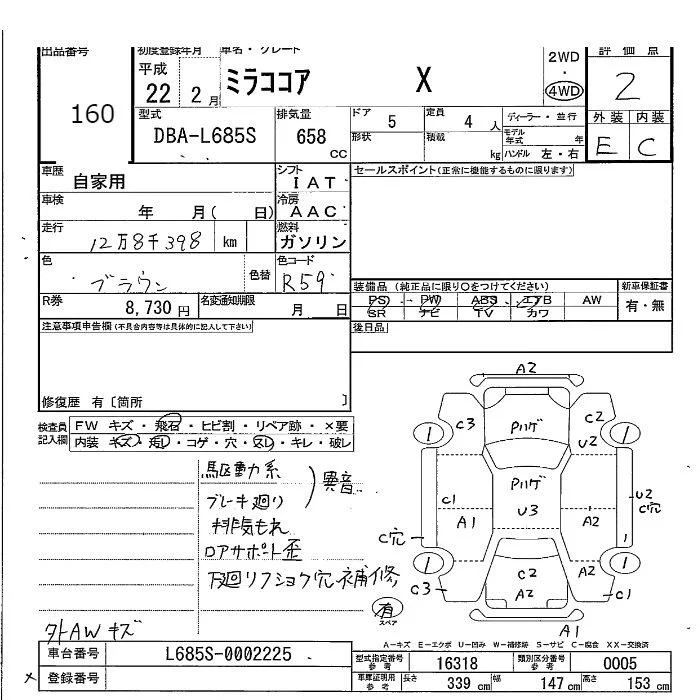 出品番号 初度登録年月 車名・グレード 評価点
160 平成 22年 2月 ミラココア X 2WD・4WD 2
型式 排気量 ドア 定員 ディーラー・並行 外装 内装
DBA-L685S 658 CC 5 4人 モデル年式 年 E C
形状 積載 kg ハンドル 左・右
車歴 自家用 シフト IAT セールスポイント(正常に機能するものに限ります)
車検 年 月( 日) 冷房 AAC
走行 12万8千398 km 燃料 ガソリン
色 ブラウン 色替 色コード R59
装備品 (純正品に限り○をつけてください) 新車保証書
PS PW ABS エアB AW 有・無
SR ナビ TV カワ
R券 8,730円 名変通知期限 月 日
注意事項申告欄(不具合内容等は具体的に記入して下さい) 後日品
修復歴 有〔箇所 〕
検査員記入欄 FW キズ・飛石・ヒビ割・リペア跡・×要
内装 キズ・汚レ・コゲ・穴・スレ・キレ・破レ
駆動系
ブレーキ廻り 異音
排気もれ
ロアサポート歪
下廻リフショク穴補修
外AWキズ
有 スペア
A2
C3 Pハゲ C2
U2
Pハゲ
C1 U3 U2
C穴
A1 A2
C穴
C3 C2 C1
A2
A1
A=キズ E=エクボ U=凹み W=補修跡 S=サビ C=腐食 XX=交換済
車台番号 L685S-0002225
登録番号
型式指定番号参考 16318 類別区分番号参考 0005
車庫証明用参考 長さ 339 cm 幅 147 cm 高さ 153 cm